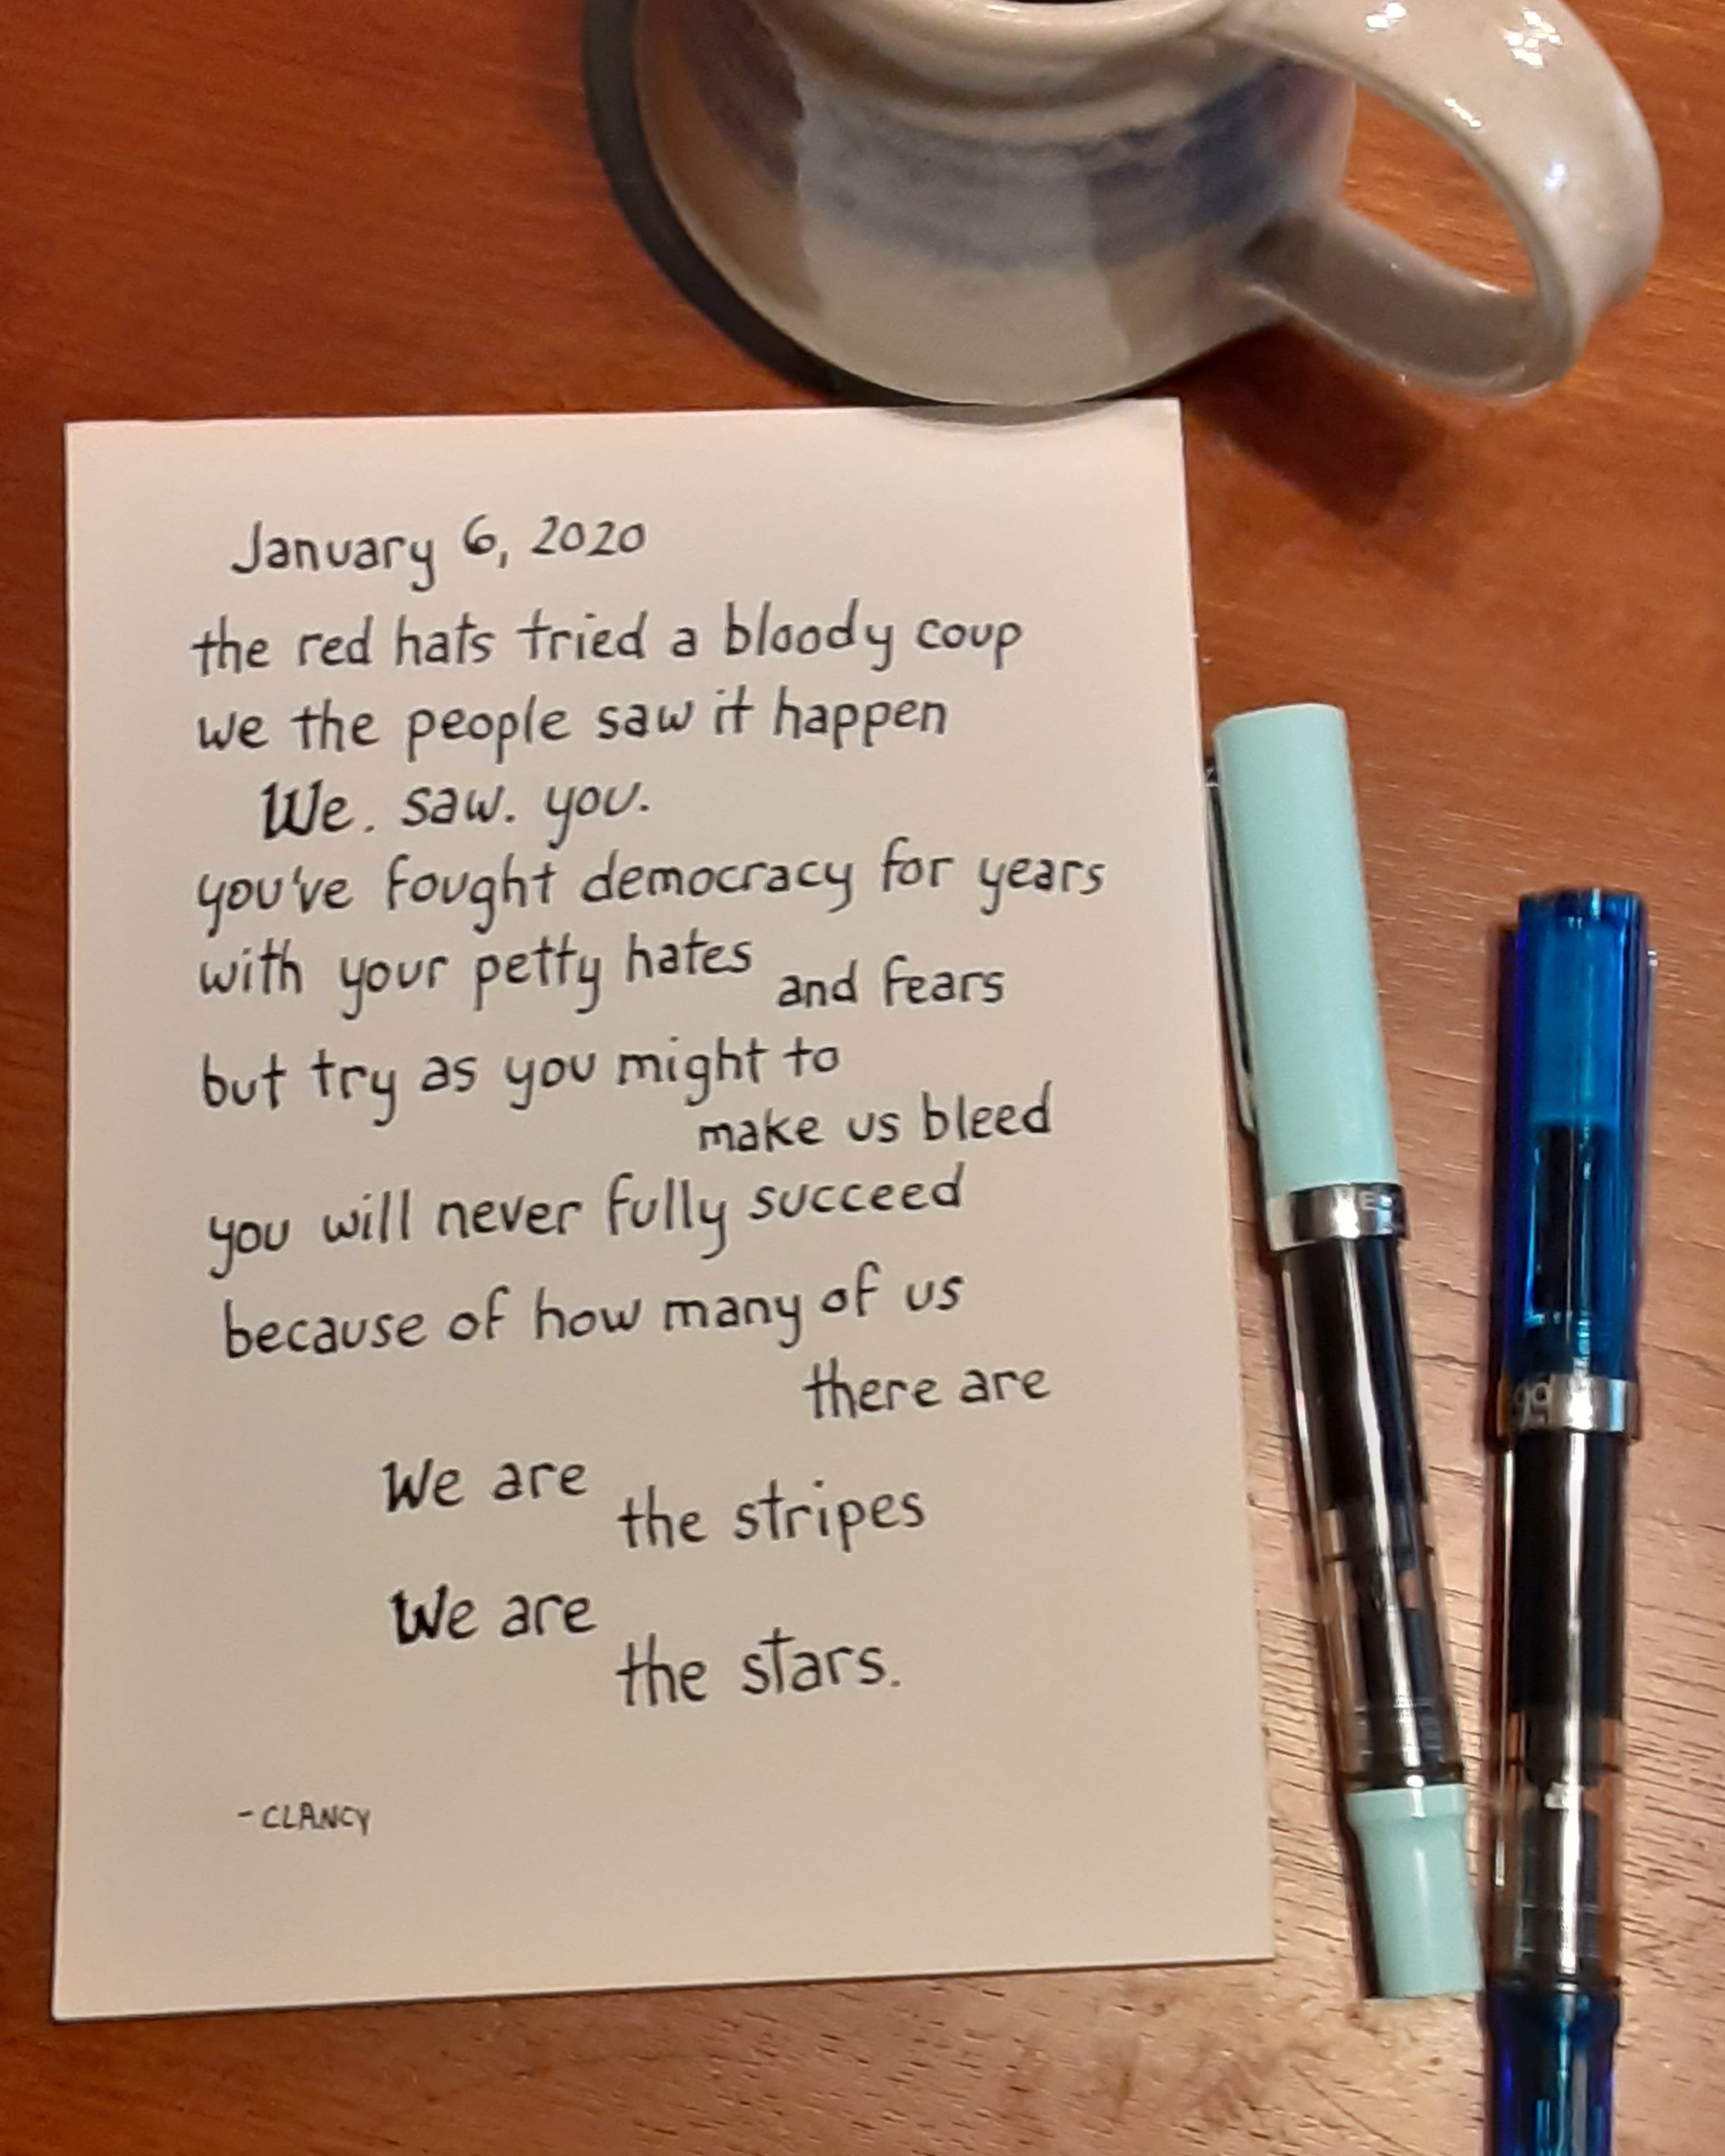 January 6, 2020
the red hats tried a bloody coup
we the people saw it happen
We. saw. you.
you've fought democracy for years
with your petty hates and fears
but try as you might to
make us bleed
you will never fully succeed
because of how many of us
there are
We are
the stripes
We are
the stars.
- CLANCY